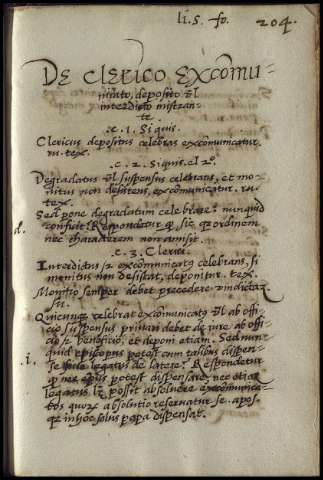 li. 5. fo. 204.
De clerico excõmu-
nicato, deposito vl
interdicto ministran-
te.
c. 1. Si quis.
Clericus depositus celebrans excõmunicatur.
tex.
c. 2. Si quis. el 2º.
Degradatus vl suspensus celebrans, et mo-
nitus non desistens, excõmunicatur.
tex.
Sed pone degradatum celebrare: nunquid
d. conficit? Respondetur qz sic, qz ordinem
nec characterem non amisit.
c. 3. Clerici.
Interdictus et excõmunicatus celebrans, si
monitus non desistat, deponitur. tex.
Monitio semper debet precedere vindictã.
Quicunqz celebrat excõmunicatus vl ab offi-
cio suspensus privari debet de iure ab offi-
cio et beneficio, et deponi etiam. Sed nun-
i. quid episcopus potest cum talibus dispen-
legatus de latere? Respondetur
qz nec potest dispensare, nec etiã
legatus, possit absolvere excõmunica-
tos quorum absolutio reservatur se. apos.
qz in hoc solus papa dispensat.